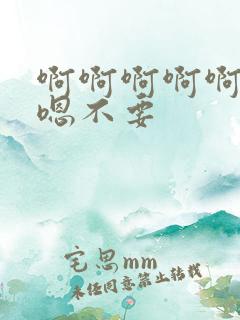 啊啊啊啊啊
嗯不要
宅思mm
未经同意禁止转载